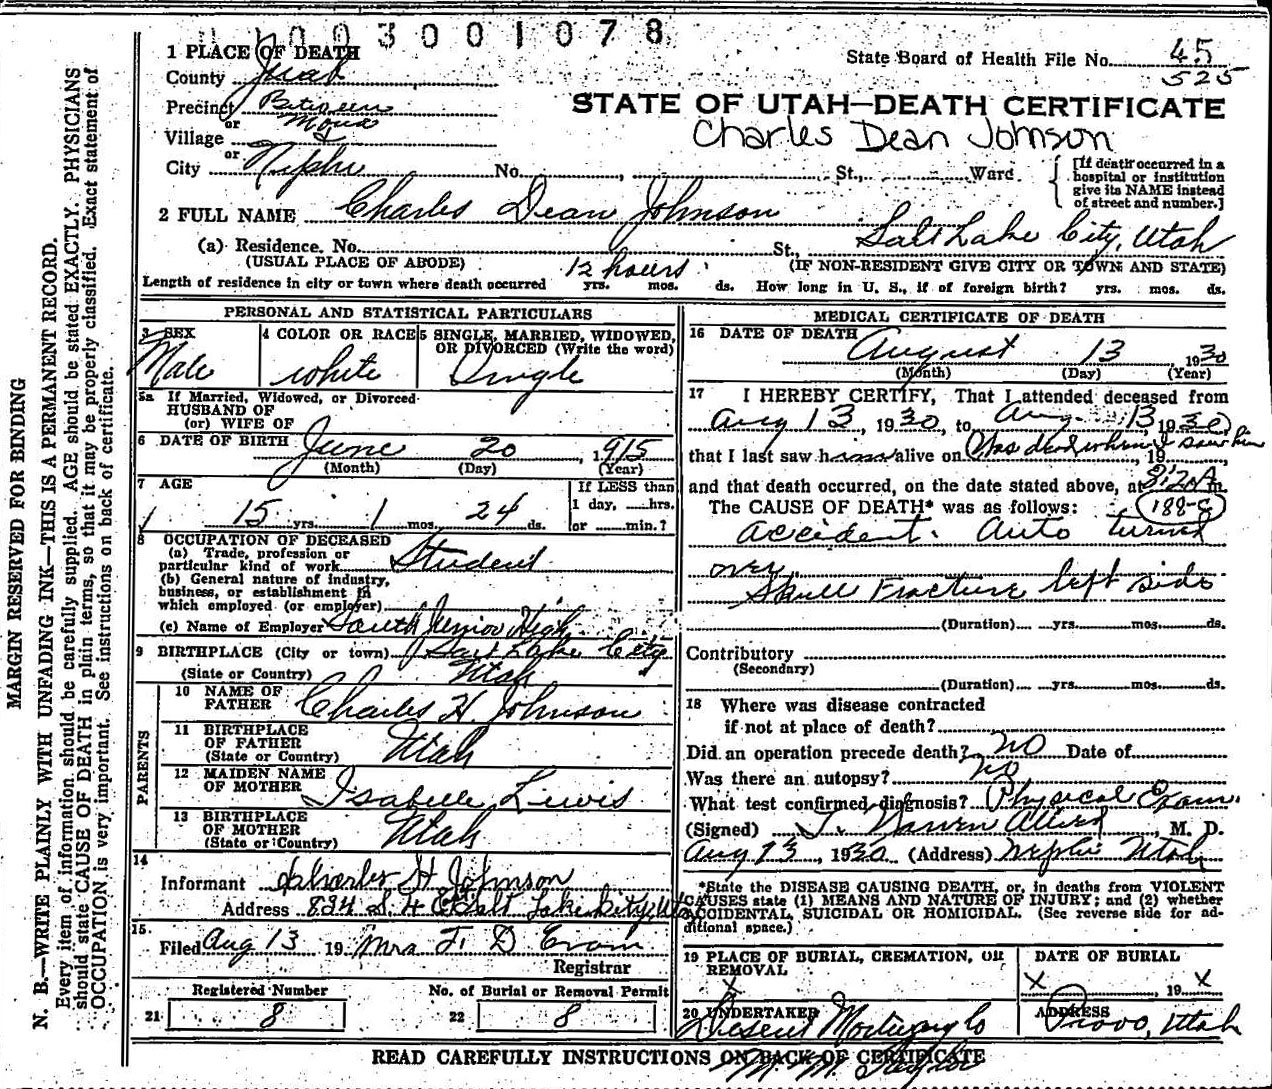 003001078
State Board of Health File No. 45
525
STATE OF UTAH—DEATH CERTIFICATE
Charles Dean Johnson
1 PLACE OF DEATH
County Juab
Precinct Between
or Mona
Village &
or
City Nephi No. St., Ward.
[If death occurred in a hospital or institution give its NAME instead of street and number.]
2 FULL NAME Charles Dean Johnson
(a) Residence. No. St., Salt Lake City, Utah
(USUAL PLACE OF ABODE) (IF NON-RESIDENT GIVE CITY OR TOWN AND STATE)
12 hours
Length of residence in city or town where death occurred yrs. mos. ds. How long in U. S., if of foreign birth? yrs. mos. ds.
PERSONAL AND STATISTICAL PARTICULARS
3 SEX
Male
4 COLOR OR RACE
White
5 SINGLE, MARRIED, WIDOWED, OR DIVORCED (Write the word)
Single
5a If Married, Widowed, or Divorced
HUSBAND OF
(or) WIFE OF
6 DATE OF BIRTH June 20, 1915
(Month) (Day) (Year)
7 AGE
15 yrs. 1 mos. 24 ds.
If LESS than
1 day, hrs.
or min.?
8 OCCUPATION OF DECEASED
(a) Trade, profession or
particular kind of work Student
(b) General nature of industry,
business, or establishment in
which employed (or employer)
(c) Name of Employer South Junior High
9 BIRTHPLACE (City or town) Salt Lake City
(State or Country) Utah
PARENTS
10 NAME OF FATHER Charles H. Johnson
11 BIRTHPLACE OF FATHER
(State or Country) Utah
12 MAIDEN NAME OF MOTHER Isabelle Lewis
13 BIRTHPLACE OF MOTHER
(State or Country) Utah
14
Informant Charles H Johnson
Address 834 S. 4 E Salt Lake City, Utah
15.
Filed Aug 13 19 Mrs. T. D.
Registrar
Registered Number
21 8
No. of Burial or Removal Permit
22 8
MEDICAL CERTIFICATE OF DEATH
16 DATE OF DEATH August 13 1930
(Month) (Day) (Year)
17 I HEREBY CERTIFY, That I attended deceased from
Aug 13, 1930, to Aug. 13, 1930,
that I last saw him alive on Was dead when I saw him, 19,
and that death occurred, on the date stated above, at 8:20 A m.
The CAUSE OF DEATH* was as follows: 188-c
accident. Auto turned
over.
Skull Fracture left side
(Duration) yrs. mos. ds.
Contributory
(Secondary)
(Duration) yrs. mos. ds.
18 Where was disease contracted
if not at place of death?
Did an operation precede death? No Date of
Was there an autopsy? No
What test confirmed diagnosis? Physical Exam.
(Signed) , M. D.
Aug 13, 1930 (Address) Nephi Utah
*State the DISEASE CAUSING DEATH, or, in deaths from VIOLENT
CAUSES state (1) MEANS AND NATURE OF INJURY; and (2) whether
ACCIDENTAL, SUICIDAL OR HOMICIDAL. (See reverse side for ad-
ditional space.)
19 PLACE OF BURIAL, CREMATION, OR REMOVAL
X
DATE OF BURIAL
X, 19 X
20 UNDERTAKER
Deseret Mortuary Co
ADDRESS
Provo, Utah
READ CAREFULLY INSTRUCTIONS ON BACK OF CERTIFICATE
MARGIN RESERVED FOR BINDING
N. B.—WRITE PLAINLY WITH UNFADING INK—THIS IS A PERMANENT RECORD.
Every item of information should be carefully supplied. AGE should be stated EXACTLY. PHYSICIANS
should state CAUSE OF DEATH in plain terms, so that it may be properly classified. Exact statement of
OCCUPATION is very important. See instructions on back of certificate.